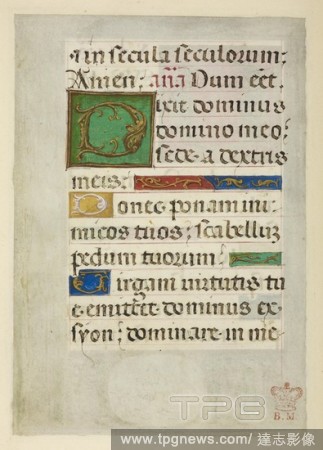 in secula seculorum:
Amen: Aña Dum eet.
Dixit dominus
domino meo:
sede a dextris
meis:
Donec ponam ini-
micos tuos; scabellum
pedum tuorum:
Virgam virtutis tu-
e emittet dominus ex
syon; dominare in me-
B. M
TPG
www.tpgnews.com/達志影像